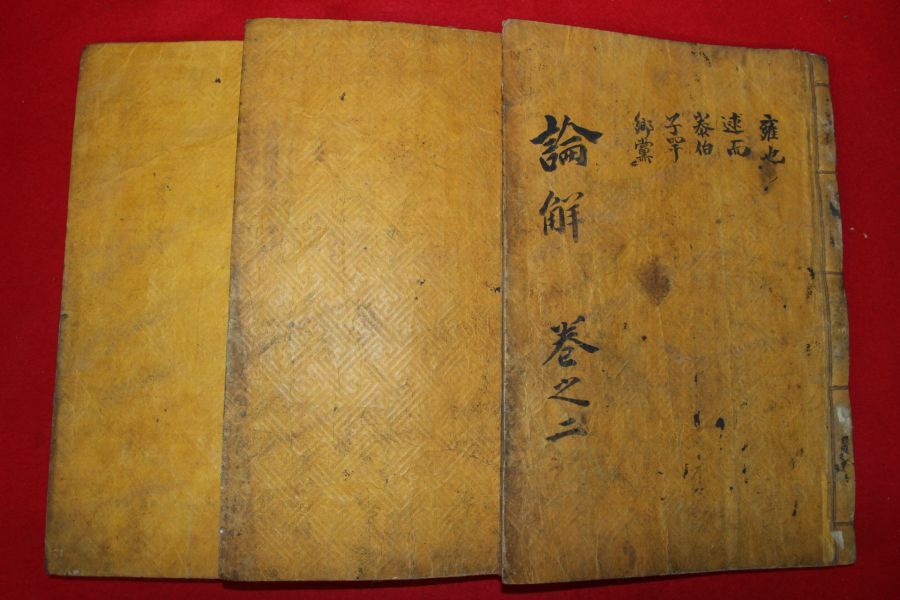 雍也
述而
泰伯
子罕
鄉黨
論觧
卷之二